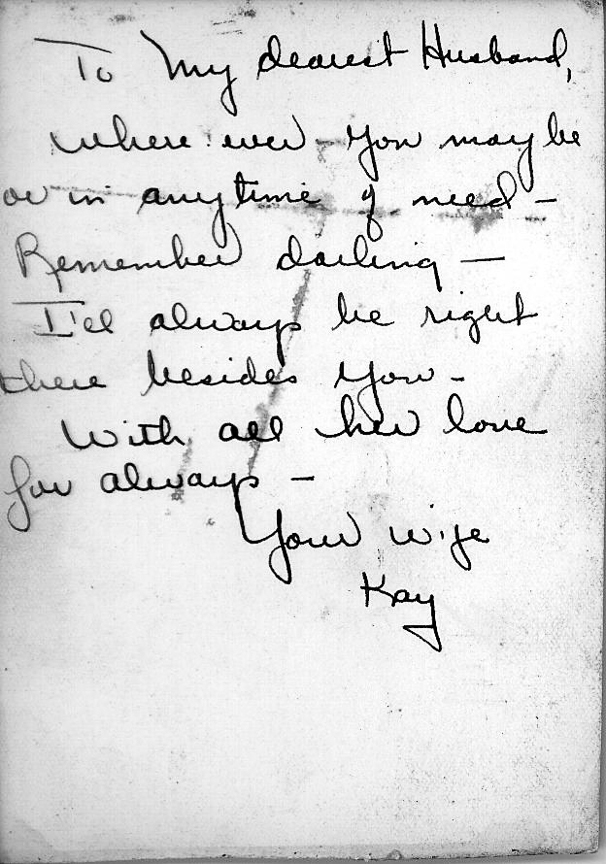 To My dearest Husband,
where ever - you may be
or in anytime of need -
Remember darling -
I'll always be right
there besides you -
With all her love
for always -
Your wife
Kay